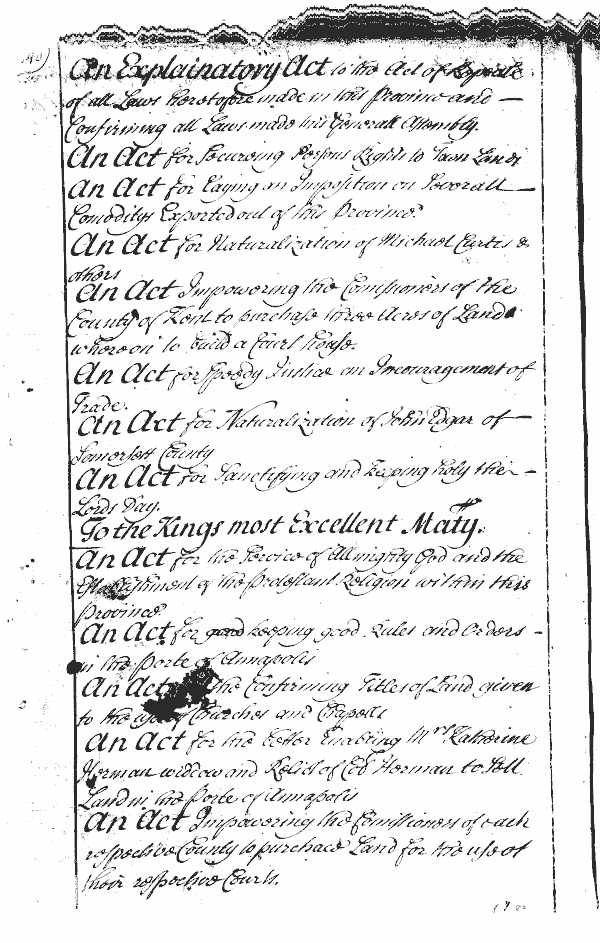 An Explainatory Act to the Act of Repeale
of all Laws heretofore made in this Province and —
Confirming all Laws made this Generall Assembly.
An Act for Secureing Persons Rights to Town Lands
An Act for Laying an Imposition on Severall —
Comoditys Exported out of this Province.
An Act for Naturalization of Michael Curtis &
others
An Act Impowering the Comissioners of the
County of Kent to purchase three Acres of Land
whereon to build a Court house.
An Act for Speedy Justice an Incouragement of
Trade.
An Act for Naturalization of John Edgar of —
Somersett County
An Act for Sanctifying and keeping holy the —
Lords Day.
To the Kings most Excellent Maty.
An Act for the Service of Allmighty God and the
Establishment of the Protestant Religion within this
Province
An Act for good keeping good Rules and Orders -
in the Porte of Annapolis
An Act the Confirming Titles of Land given
to the use of Churches and Chapells
An Act for the better Enabling Mrs Katherine
Herman widdow and Relict of Herman to Sell
Land in the Porte of Annapolis
An Act Impowering the Comissioners of each
respective County to purchace Land for the use of
their respective Courts.